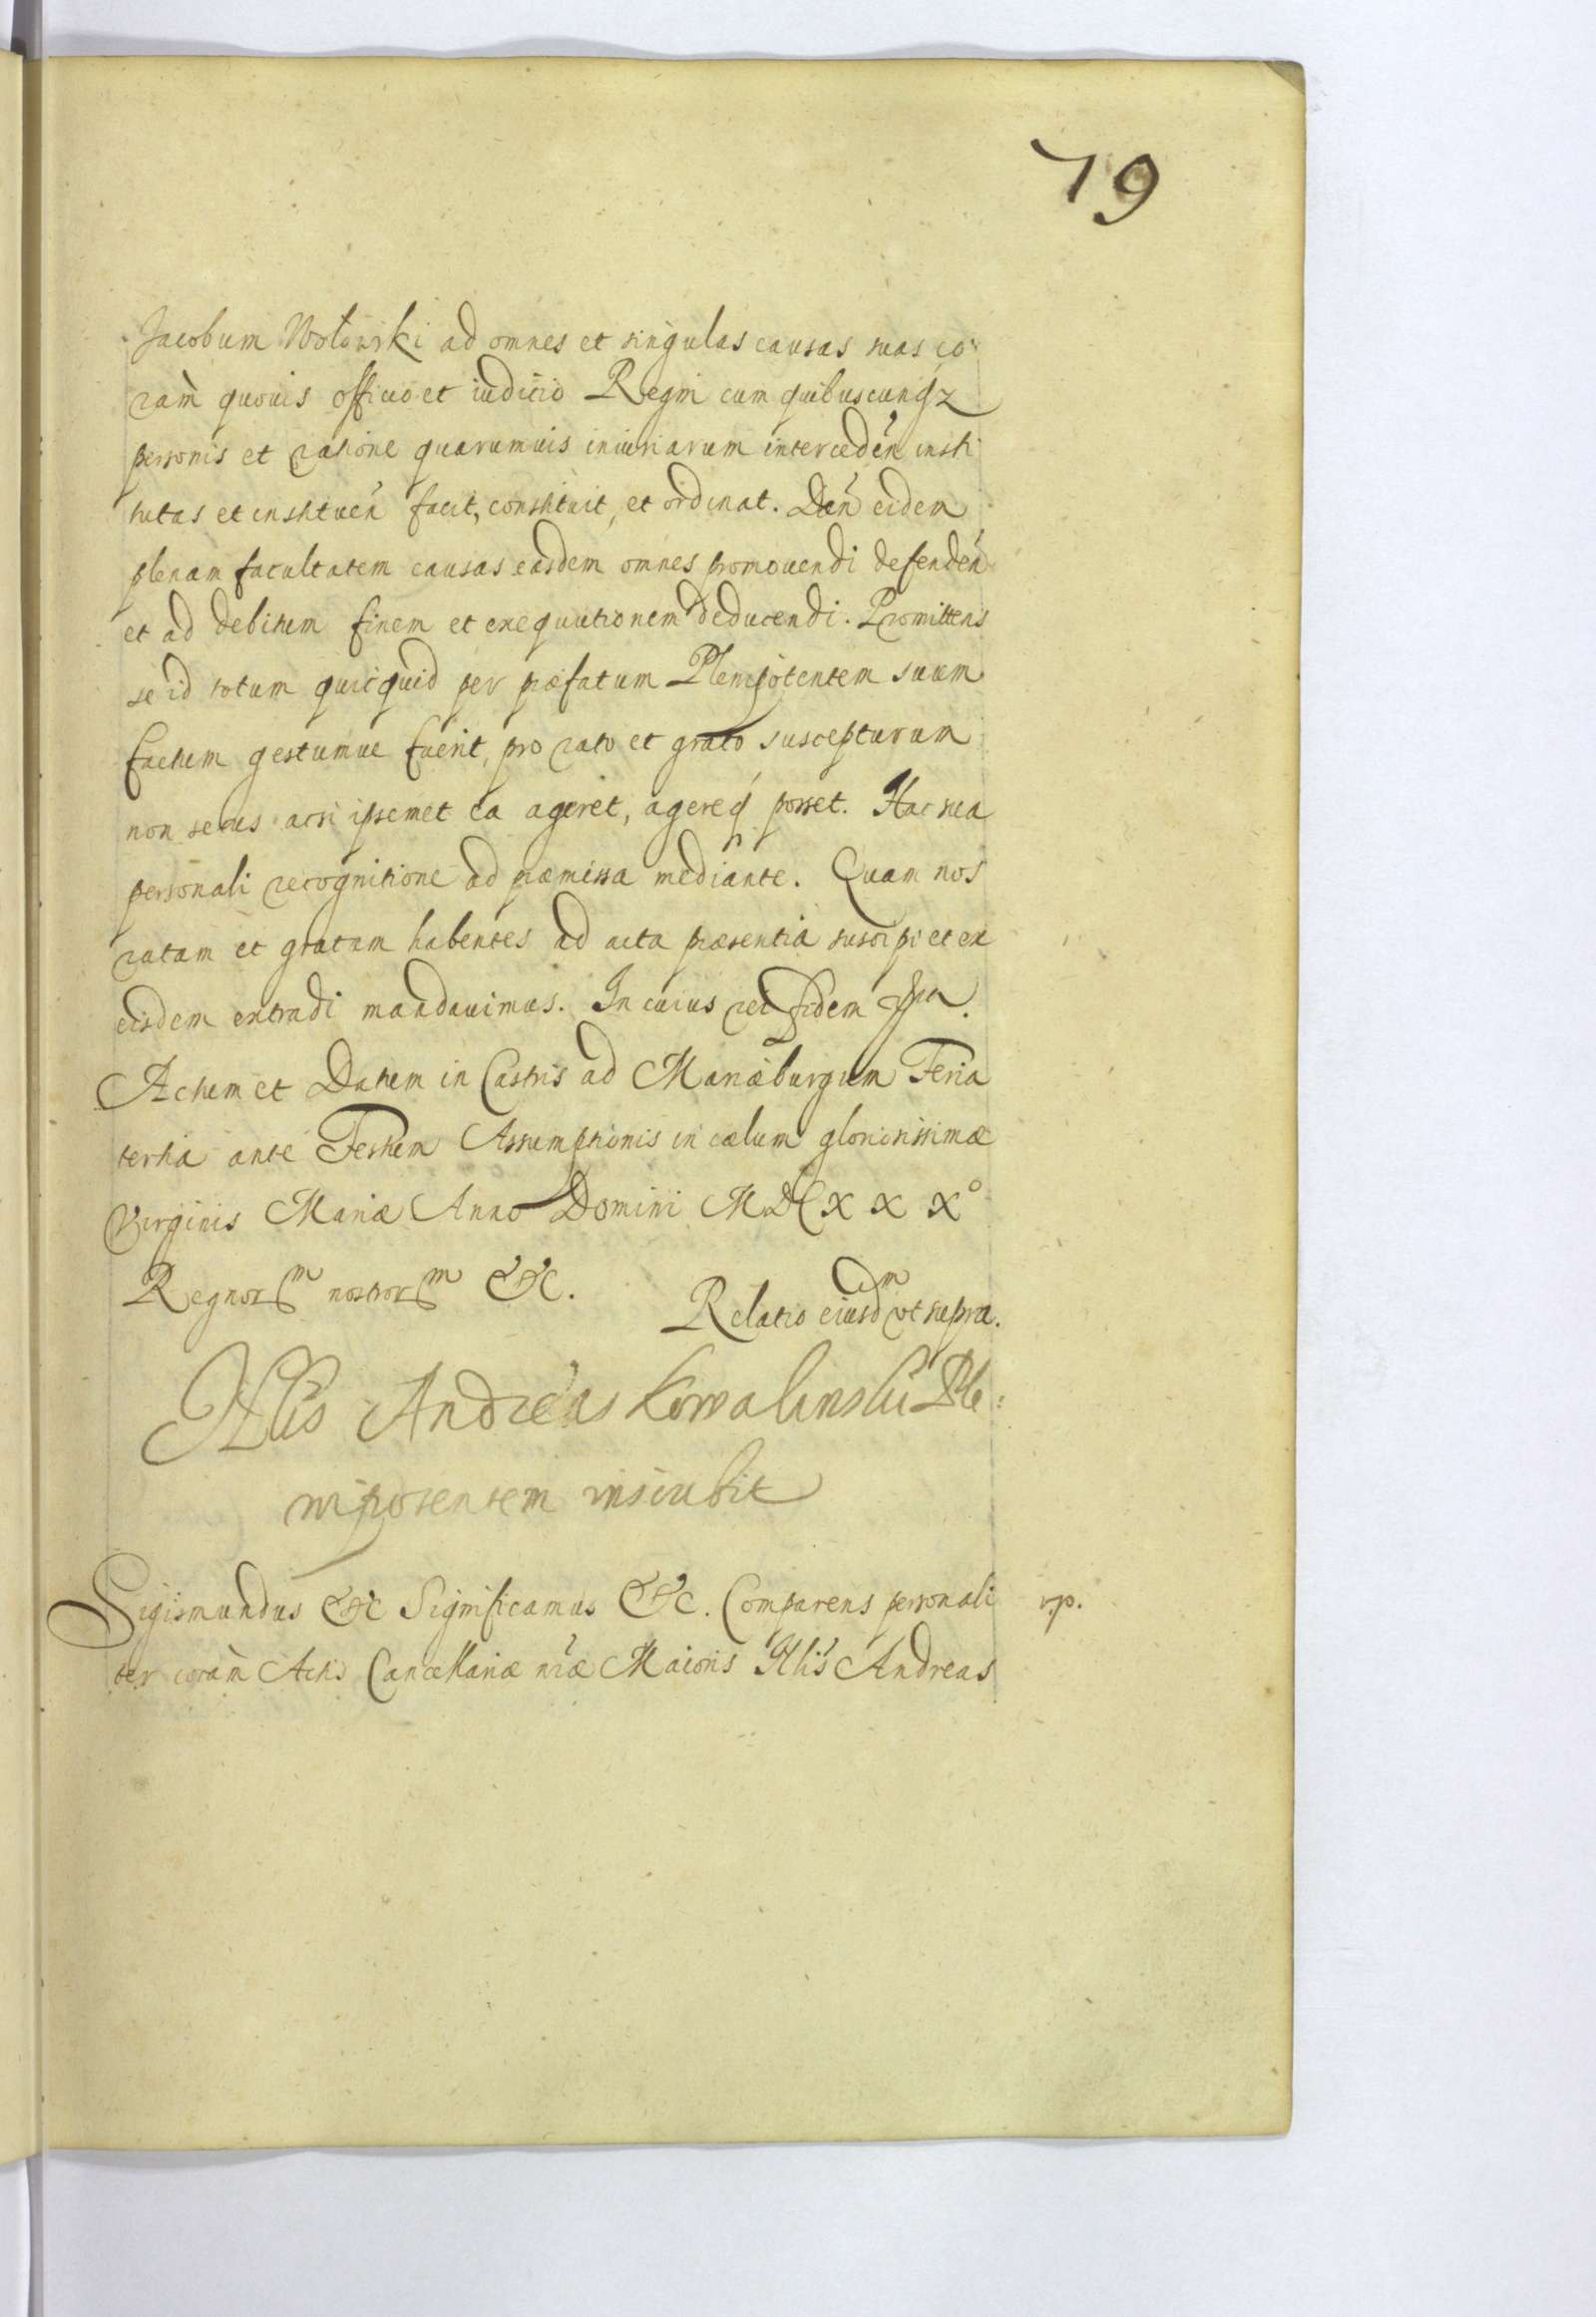 79
Jacobum Wołowski ad omnes et singulas causas suas co
ràm quouis officio et iudicio Regni cum quibuscunq́z
personis et ratione quarumuis iniuriarum interceden̄ insti
tutas et instituen̄ facit, constituit, et ordinat. Dan̄ eidem
plenam facultatem causas easdem omnes promouendi defenden̄
et ad debitum finem et exequutionem deducendi. Promittens
se id totum quicquid per præfatum Plenipotentem suum
factum gestumue fuerit, pro rato et grato suscepturum
non secus acsi ipsemet ea ageret, agereq́ posset. Hac sua
personali recognitione ad præmissa mediante. Quam nos
ratam et gratam habentes ad acta præsentia suscipi et ex
eisdem extradi mandauimus. In cuius rei fidem ꝓn̄.
Actum et Datum in Castris ad Mariæburgum Feria
tertia ante Festum Assumptionis in cœlum gloriosissimæ
Virginis Mariæ Anno Domini MDCXXX°
Regnorm nostrorm &c.
Relatio eiusdm vt supra.
Glis Andreas Kowalinski Ple:
nipotentem inscribit
Sigismundus &c Significamus &c. Comparens personali
rp.
ter coràm Actis Cancellariæ nr̄æ Maioris Glis̄ Andreas